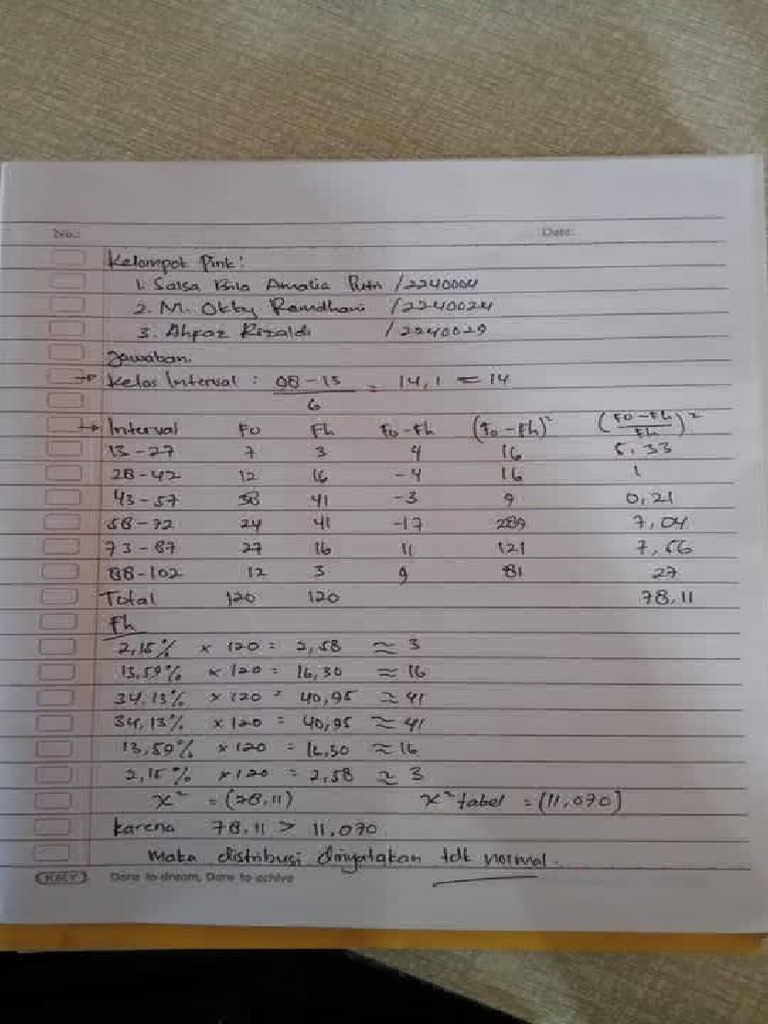 No.: Date:
Kelompok Pink:
1. Salsa Bila Amalia Putri /2240004
2. M. Okky Ramdhani /2240024
3. Ahfaz Rizaldi /2240029
Jawaban.
→ Kelas Interval : 98 - 13 / 6 = 14,1 = 14
→ Interval Fo Fh Fo-Fh (Fo-Fh)² (Fo-Fh/Fh)²
13-27 7 3 4 16 5,33
28-42 12 16 -4 16 1
43-57 38 41 -3 9 0,21
58-72 24 41 -17 289 7,04
73-87 27 16 11 121 7,56
88-102 12 3 9 81 27
Total 120 120 78,11
Fh
2,15% x 120 = 2,58 ≈ 3
13,59% x 120 = 16,30 ≈ 16
34,13% x 120 = 40,95 ≈ 41
34,13% x 120 = 40,95 ≈ 41
13,59% x 120 = 16,30 ≈ 16
2,15% x 120 = 2,58 ≈ 3
x² = (78,11) x² tabel = (11,070)
karena 78.11 > 11,070
Maka distribusi dinyatakan tdk normal.
KIKY Dare to dream, Dare to achive